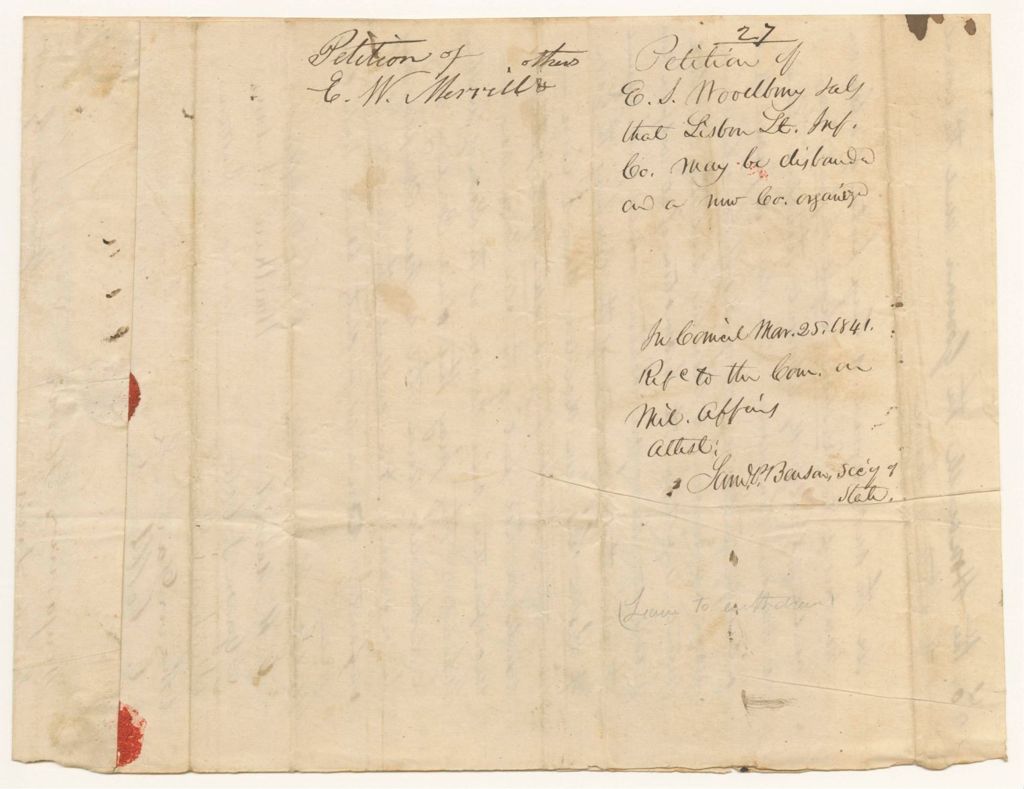 Petition of
E. W. Merrill & others
27
Petition of
E. S. Woodbury & als
that Lisbon Lt. Inf.
Co. may be disbanded
and a new Co. organized
In Council Mar. 25. 1841.
Refd to the Com. on
Mil. Affairs
Attest:
Saml. P. Benson, Sec'y of
State.
(Leave to withdraw)